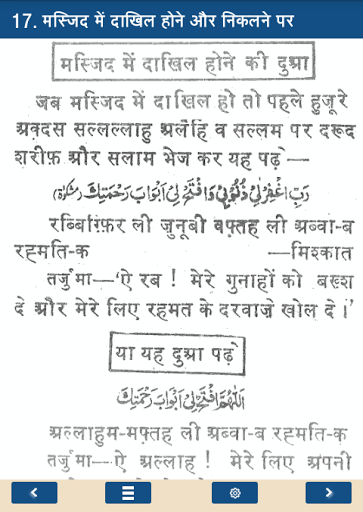 17. मस्जिद में दाखिल होने और निकलने पर
मस्जिद में दाखिल होने की दुआ
जब मस्जिद में दाखिल हो तो पहले हुज़ूरे
अक़दस सल्लल्लाहु अलैहि व सल्लम पर दरूद
शरीफ़ और सलाम भेज कर यह पढ़े —
رَبِّ اغْفِرْ لِيْ ذُنُوْبِيْ وَافْتَحْ لِيْ اَبْوَابَ رَحْمَتِكَ (مشکوٰۃ)
रब्बिग़्फ़िर ली ज़ुनूबी वफ़्तह ली अब्वा-ब
रह्मति-क —मिश्कात
तर्जुमा—'ऐ रब ! मेरे गुनाहों को बख़्श
दे और मेरे लिए रहमत के दरवाज़े खोल दे।'
या यह दुआ पढ़े
اَللّٰهُمَّ افْتَحْ لِيْ اَبْوَابَ رَحْمَتِكَ
अल्लाहुम-मफ़्तह ली अब्वा-ब रह्मति-क़
तर्जुमा—ऐ अल्लाह ! मेरे लिए अपनी